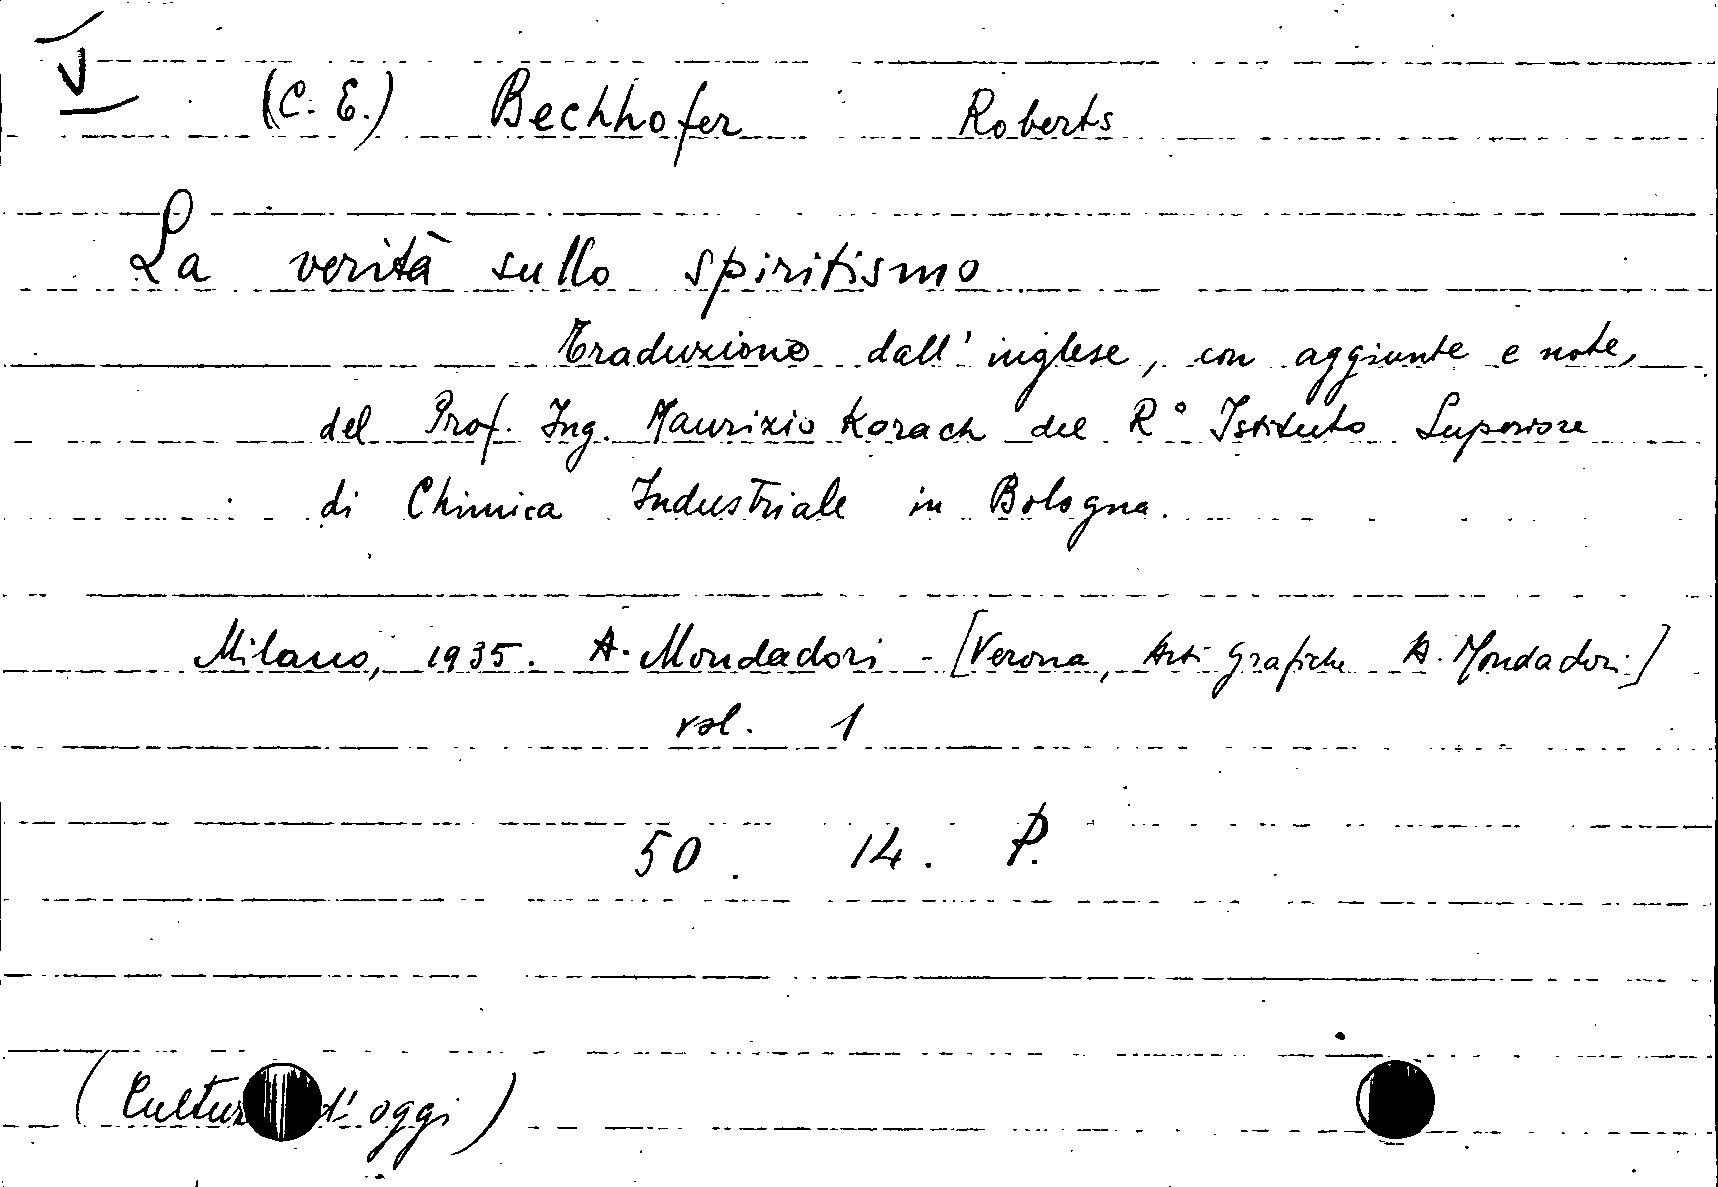 V
(C. E.) Bechhofer Roberts
La verità sullo spiritismo
Traduzione dall' inglese, con aggiunte e note,
del Prof. Ing. Maurizio Korach del R° Istituto Superiore
di Chimica Industriale in Bologna.
Milano, 1935. A. Mondadori - [Verona, Arti Grafiche A. Mondadori]
vol. 1
50. 14. P.
(Cultura d'oggi)